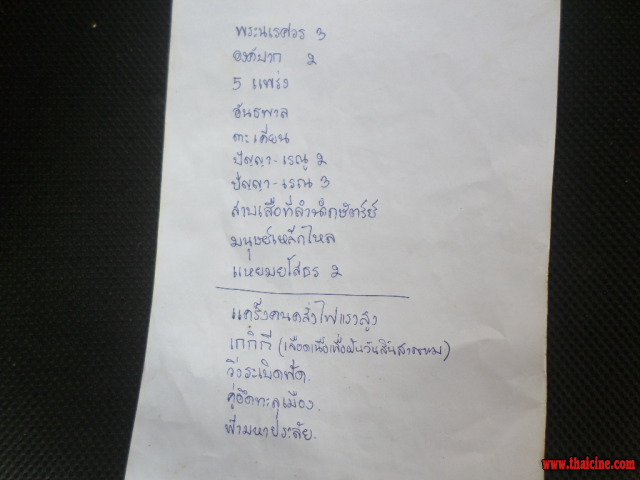 พระนเรศวร 3
องค์บาก 2
5 แพร่ง
อันธพาล
ตะเคียน
ปัญญา - เรณู 2
ปัญญา - เรณู 3
สาบเสือที่ลำน้ำกษัตริย์
มนุษย์เหล็กไหล
แหยมยโสธร 2
แคร็งคนดสั่งไฟแรงสูง
เกกิกี (เลือดเนื้อเพื่อฝันวันสิ้นสาดหม)
วิ่งระเบิดฟัด.
คู่อึดทะลุเมือง.
ฟ้ามหาประลัย.
www.thaicine.com